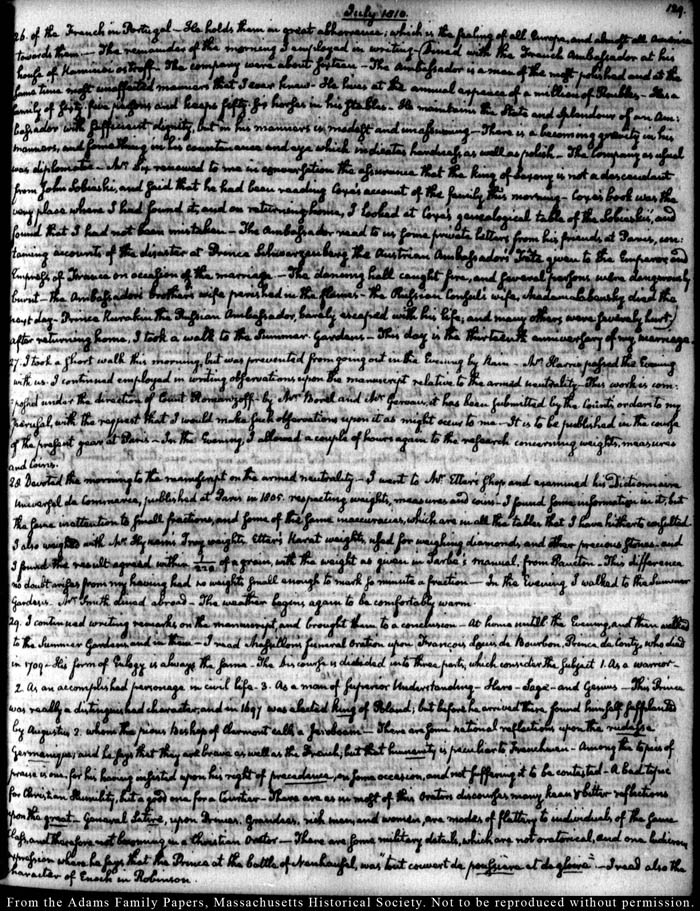 July 1810.
129.
26. of the French in Portugal — He holds them in great abhorrence; which is the feeling of all Europe, and almost all America
towards them — The remainder of the morning I employed in writing — Dined with the French Ambassador at his
house of Kamenoi ostroff. The company were about fifteen — The Ambassador is a man of the most polished and at the
same time most unaffected manners that I ever knew — He lives at the annual expence of a million of Roubles — Has a
family of sixty five persons and keeps fifty six horses in his stables. He maintains the State and Splendour of an Am:
bassador with sufficient dignity, but in his manners is modest and unassuming — There is a becoming gravity in his
manners, and something in his countenance and eye which indicates hardness as well as polish — The Company as usual
was diplomatic — Mr. Six renewed to me in conversation the assurance that the king of Saxony is not a descendant
from John Sobieski, and said that he had been reading Coxe's account of the family this morning — Coxe's book was the
very place where I had found it, and on returning home, I looked at Coxe's genealogical table of the Sobieskis, and
found that I had not been mistaken — The Ambassador read to us some private letters from his friends at Paris, con:
taining accounts of the disaster at Prince Schwarzenberg the Austrian Ambassadors' Fête given to the Emperor and
Empress of France on occasion of the marriage — The dancing hall caught fire, and several persons were dangerously
burnt — the Ambassador's brother's wife perished in the flames — The Russian Consul's wife, Madame Labensky died the
next day — Prince Kurakin the Russian Ambassador, barely escaped with his life, and many others were severely hurt.
after returning home, I took a walk to the Summer-Gardens — This day is the thirteenth anniversary of my marriage.
27. I took a short walk this morning, but was prevented from going out in the Evening by Rain — Mr. Harris passed the Evening
with us. I continued employed in writing observations upon the manuscript relative to the armed neutrality — This work is com:
:posed under the direction of Count Romanzoff — by Mr. Borel and Mr. Gervais; it has been submitted by the Count's orders to my
perusal, with the request that I would make such observations upon it as might occur to me — It is to be published in the course
of the present year at Paris — In the Evening, I allowed a couple of hours again to the research concerning weights, measures
and coins.
28. Devoted the morning to the manuscript on the armed neutrality — I went to Mr. Etter's shop and examined his Dictionnaire
Universel de Commerce, published at Paris in 1805. respecting weights, measures and coins — I found some information in it, but
the same inattention to small fractions, and some of the same inaccuracies, which are in all the tables that I have hitherto consulted
I also weighed with Mr. Hyam's Troy weights, Etter's Karat weights, used for weighing diamonds and other precious stones — and
I found the result agreed within of a grain, with the weight as given in Tarbé's manual, from Paucton — This difference
no doubt arises from my having had no weights small enough to mark so minute a fraction — In the Evening I walked to the Summer
Gardens. Mr. Smith dined abroad — The weather begins again to be comfortably warm.
29. I continued writing remarks on the manuscript, and brought them to a conclusion — At home untill the Evening, and then walked
to the Summer Gardens and in them — I read Massillon's funeral Oration upon François Louis de Bourbon, Prince de Conty, who died
in 1709 — His form of Eulogy is always the same — The discourse is divided into three parts, which consider the subject 1. As a warrior —
2. As an accomplished personage in civil life. 3. As a man of Superior Understanding — Hero — Sage — and Genius — This Prince
was really a distinguished character, and in 1697 was elected king of Poland; but before he arrived there found himself supplanted
by Augustus 2. whom the pious Bishop of Clermont calls a Jeroboam — There are some national reflections upon the rudesse
Germanique; and he says that they are brave as well as the French, but that humanity is peculiar to Frenchmen — Among the topics of
praise is one, for his having insisted upon his right of precedence, on some occasion, and not suffering it to be contested — A bad topic
for Christian Humility, but a good one for a Courtier — There are as in most of this Orators discourses many keen & bitter reflections
upon the great — General Satire, upon Princes, Grandees, rich men, and women, are modes of flattery to individuals of the same
Class and therefore not becoming in a Christian Orator — There are some military details, which are not oratorical, and one ludicrous
expression where he says that the Prince at the battle of Neuhausel, was "tout couvert de poussiere et de gloire" — I read also the
character of Enoch in Robinson.
From the Adams Family Papers, Massachusetts Historical Society. Not to be reproduced without permission.